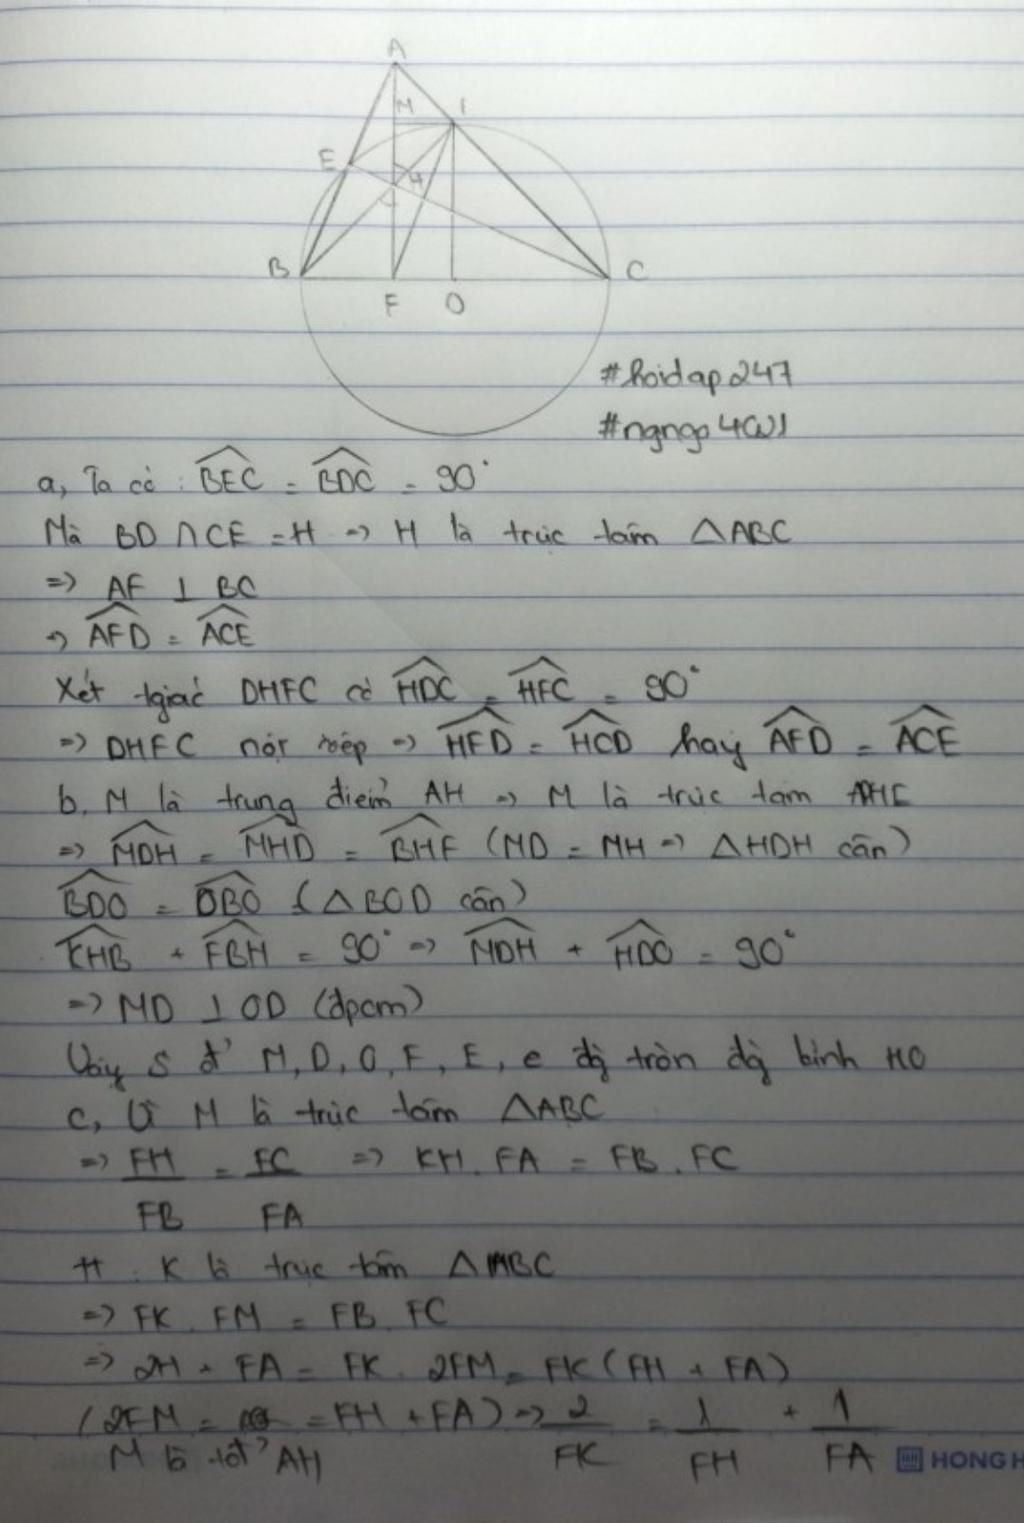 A
M
I
E
H
B
C
F
O
#hoidap247
#ngngo4001
a, Ta có : BEC = BDC = 90°
Mà BD ∩ CE = H => H là trực tâm △ABC
=> AF ⊥ BC
=> AFD = ACE
Xét tgiác DHFC có HDC = HFC = 90°
=> DHFC nội tiếp => HFD = HCD hay AFD = ACE
b, M là trung điểm AH => M là trực tâm AHE
=> MDH = MHD = BHF (MD = MH => △HDH cân)
BDO = OBO (△BOD cân)
FHB + FBH = 90° => MDH + HDO = 90°
=> MD ⊥ OD (đpcm)
Vậy 5 đ' M, D, O, F, E, e đg tròn đg kính MO
c, Vì M là trực tâm △ABC
=> FH/FB = FC/FA => KH . FA = FB . FC
tt : K là trực tâm △MBC
=> FK . FM = FB . FC
=> 2H . FA = FK . 2FM = FK (FH + FA)
(2FM = = FH + FA) => 2/FK = 1/FH + 1/FA
M là AH
HONG H